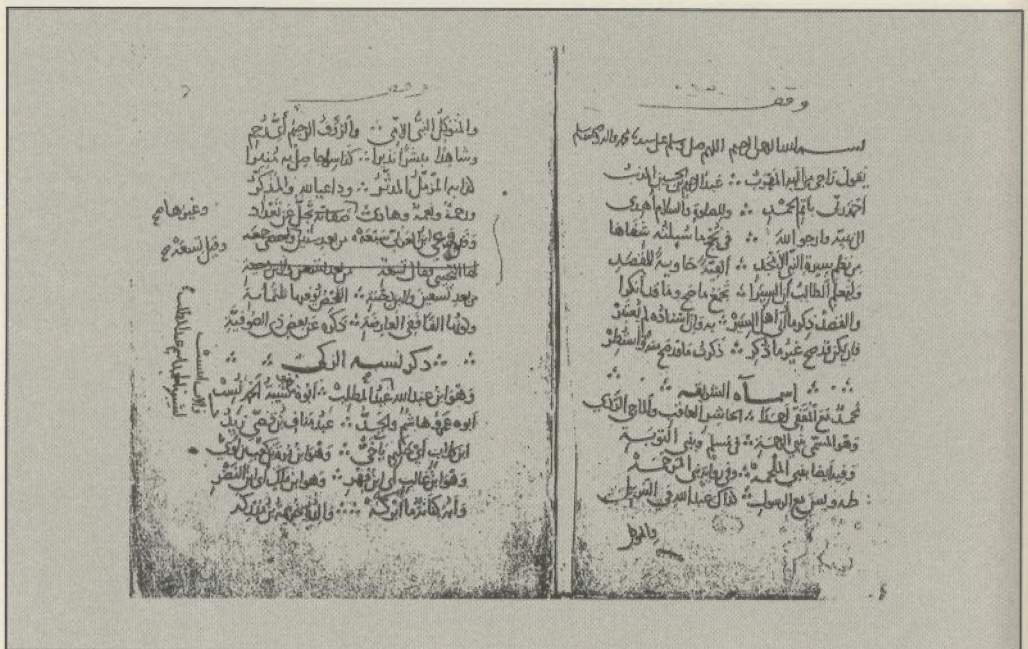 وقف
بسم الله الرحمن الرحيم اللهم صل وسلم على سيدنا محمد واله وصحبه وسلم
يقول راجي من اليه المهرب ∴ عبد الرحيم بن الحسين المذنب
احمد ربي باتم الحمد ∴ وللصلوة والسلام اهدي
الى نبيه وارجو الله ∴ في نجح ما سئلته شفاها
من نظم سيرة النبي الامجد ∴ الفية حاوية للمقصد
وليعلم الطالب ان السيرا ∴ تجمع ما صح وما قد انكرا
والقصد ذكر ما اتى اهل السير ∴ به وان اسناده لم يعتبر
فان يكن قد صح غير ما ذكر ∴ ذكرت ما قد صح منه واستطر
∴ اسماؤه الشريفه ∴
محمد مع المقفى احمدا ∴ الحاشر العاقب والماحي الردى
وهو المسمى بنبي الرحمة ∴ في مسلم وبنبي التوبة
وفيه ايضا بنبي الملحمة ∴ وفي رواية نبي المرحمة
طه ويس مع الرسول ∴ كذاك عبد الله في التنزيل
والمتوكل
وقف
والمتوكل النبي الامي ∴ والرؤف الرحيم اي رحم
وشاهدا مبشرا نذيرا ∴ كذا سراجا صل به منيرا
كذا به المزمل المدثر ∴ وداعيا لله والمذكر
ورحمة ونعمة وهادي ∴ تجل عن تعداد
وغيرها صح
وقد وعى ابن العربي سبعة ∴ من بعد ستين
وقيل تسعة صح
من بعد تسعين ولابن دحية ∴ الفحص يوفيها ثلثماية
وكونها الفا ففي العارضة ∴ ذكره عن بعض ذي الصوفية
∴ ذكر نسبه الزكي ∴
وهو ابن عبد الله عبد المطلب ∴ ابوه وهو شيبة الحمد نسب
ابوه عمرو هاشم والجد ∴ عبد مناف بن قصي زيد
ابن كلاب اي حكيم يا اخي ∴ وهو ابن مرة بن كعب بن لؤي
وهو ابن غالب اي ابن فهر ∴ وهو ابن مالك اي ابن النضر
وابه كنانة ما ابركه ∴ والده خزيمة بن مدركه